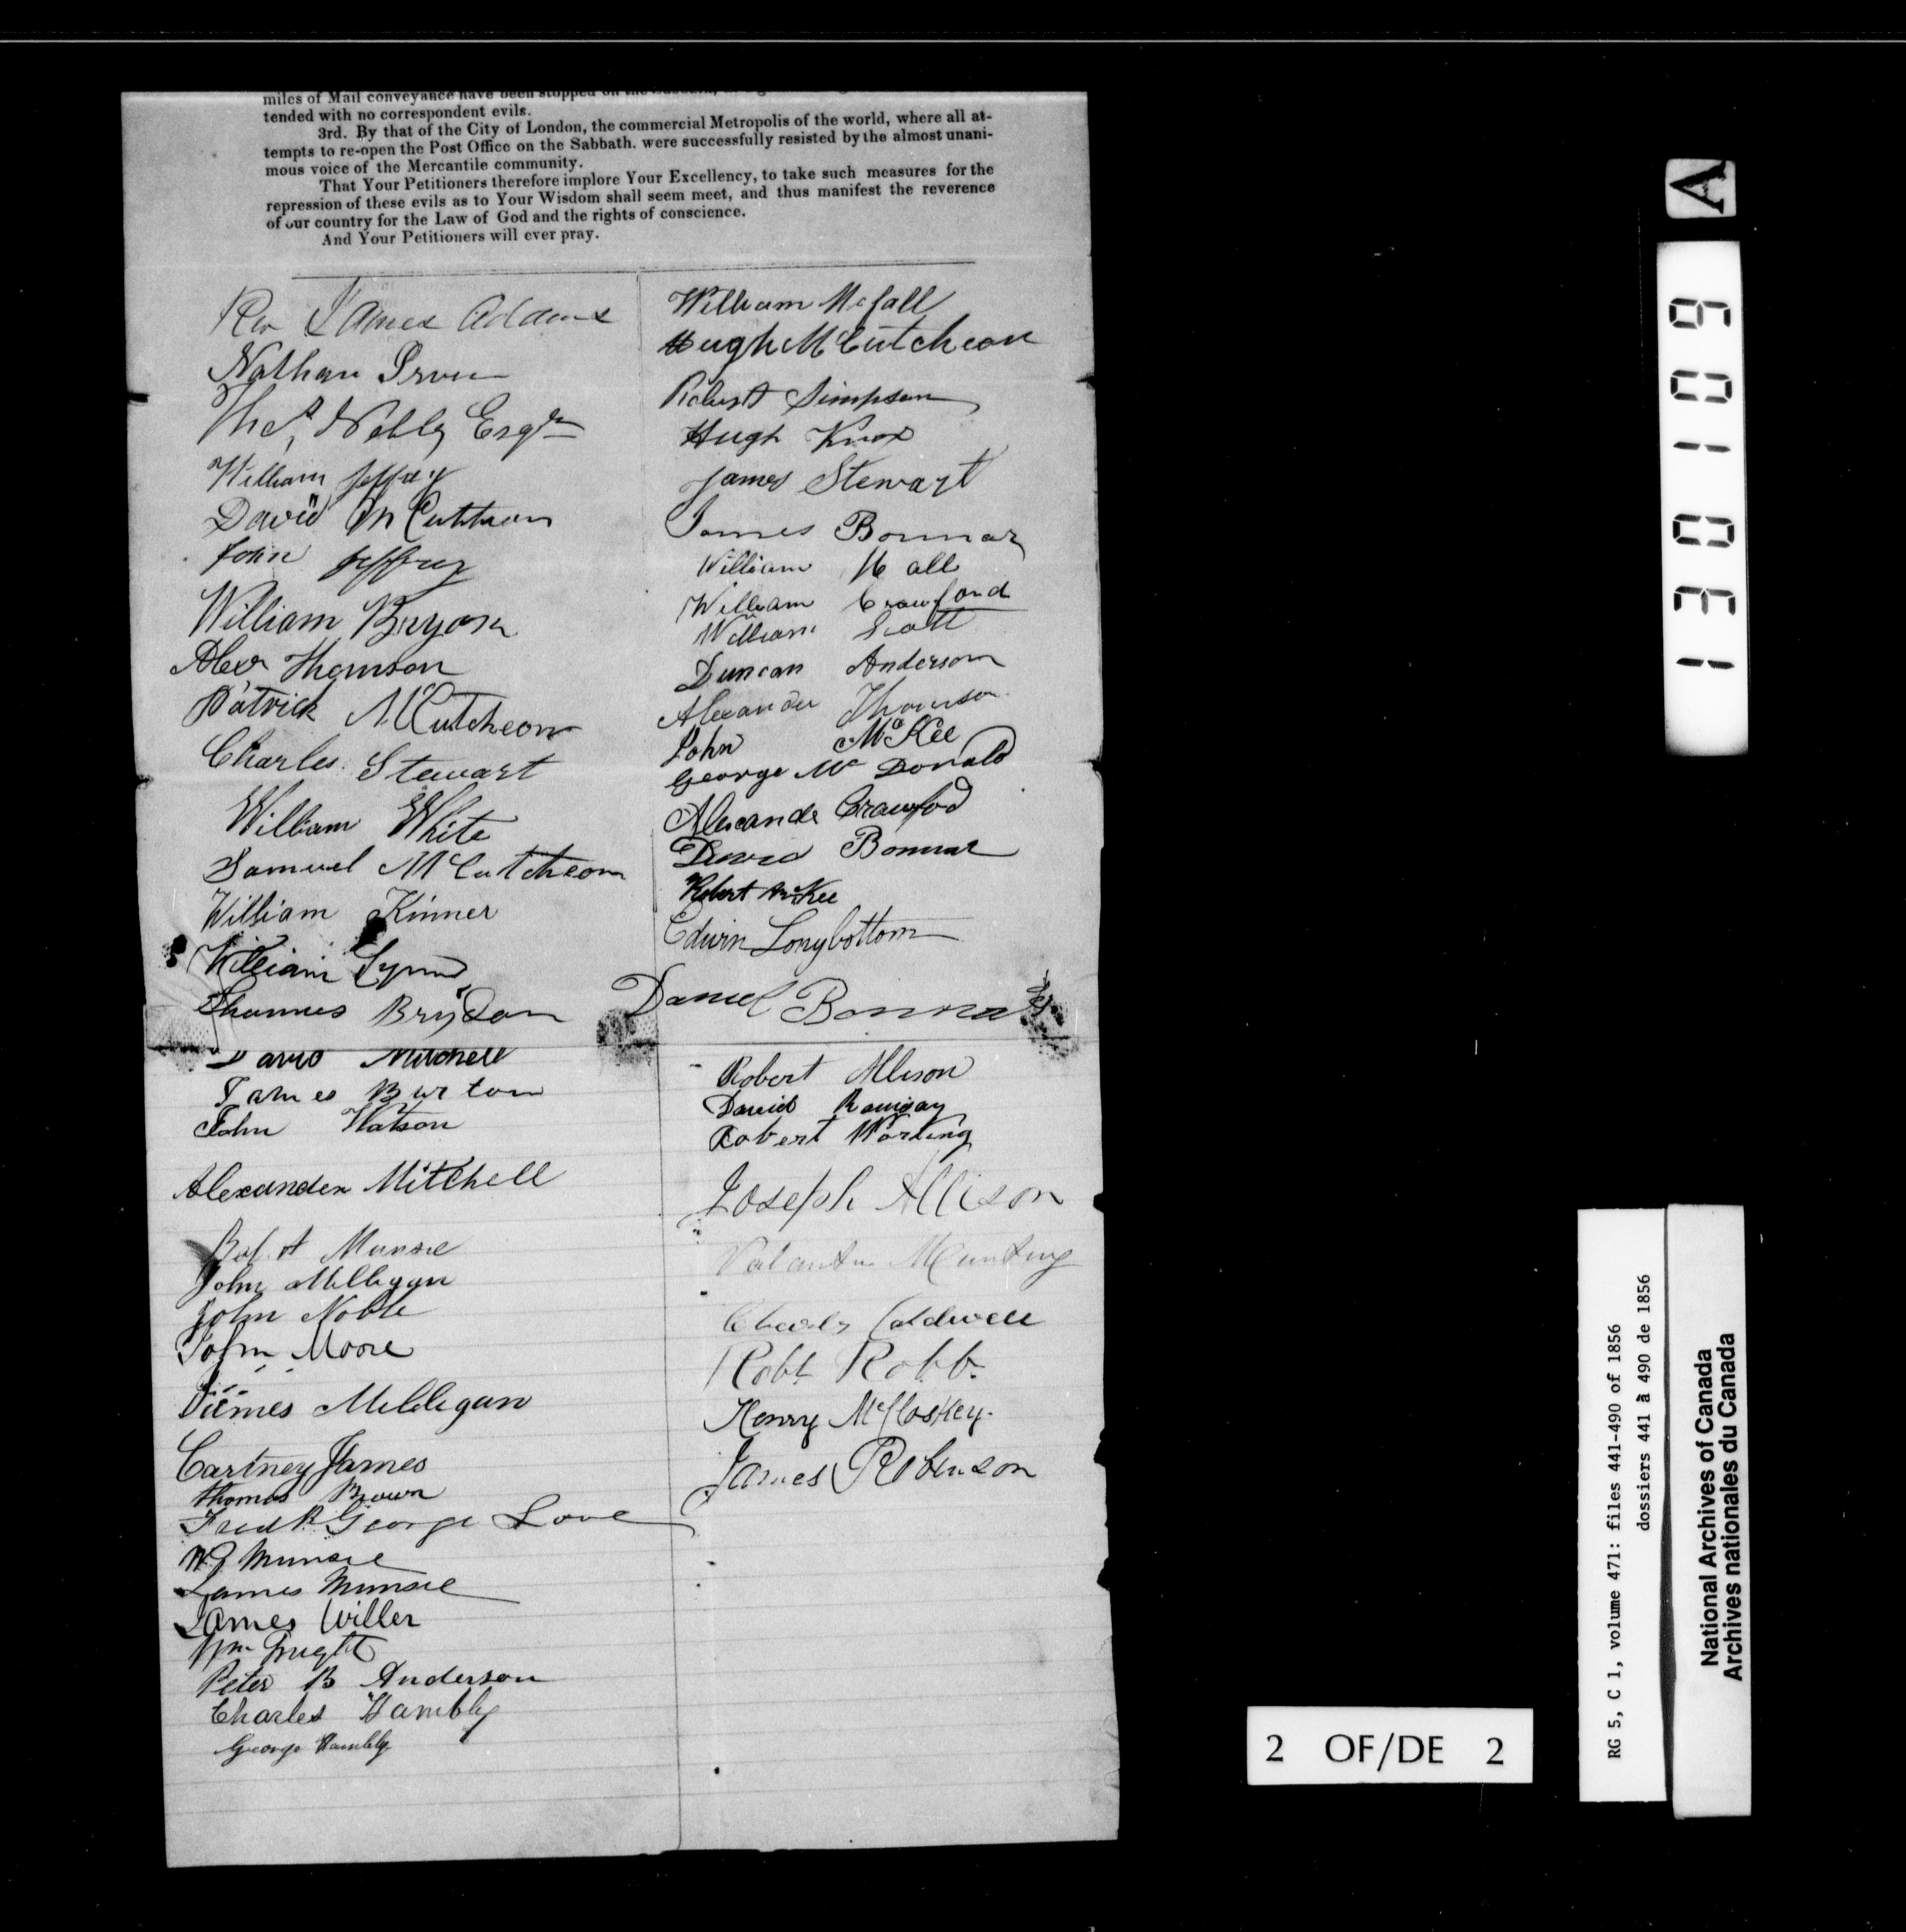 miles of Mail conveyance have been stopped on the Sabbath,
tended with no correspondent evils.
3rd. By that of the City of London, the commercial Metropolis of the world, where all at-
tempts to re-open the Post Office on the Sabbath. were successfully resisted by the almost unani-
mous voice of the Mercantile community.
That Your Petitioners therefore implore Your Excellency, to take such measures for the
repression of these evils as to Your Wisdom shall seem meet, and thus manifest the reverence
of our country for the Law of God and the rights of conscience.
And Your Petitioners will ever pray.
Rev James Adams
Nathan Irvin
Thos Esqr
William Jeffrey
David McCutcheon
John Jeffrey
William Bryson
Alexr Thomson
Patrick McCutcheon
Charles Stewart
William White
Samuel McCutcheon
William Kinner
William Lynn
Thomas Brydon
David Mitchell
James Burton
John Watson
Alexander Mitchell
Robt Munsie
John Milligan
John Noble
John Moore
James Milligan
Cartney James
Thomas Brown
Fredk George Love
Wm Munsie
James Munsie
James Willer
Wm
Peter B Anderson
Charles Hambly
George Hambly
William McFall
Hugh McCutcheon
Robert Simpson
Hugh Knox
James Stewart
James Bonnar
William Hall
William Crawford
William Scott
Duncan Anderson
Alexander Thomson
John McKee
George McDonald
Alexande Crawfod
David Bonnar
Robert McKee
Edwin Longbottom
Daniel Bonnar
Robert Allison
David Ramsay
Robert Worling
Joseph Allison
Charles Caldwell
Robt Robb.
Henry McCloskey.
James Robinson
A
130109
2 OF/DE 2
RG 5, C 1, volume 471: files 441-490 of 1856
dossiers 441 à 490 de 1856
National Archives of Canada
Archives nationales du Canada